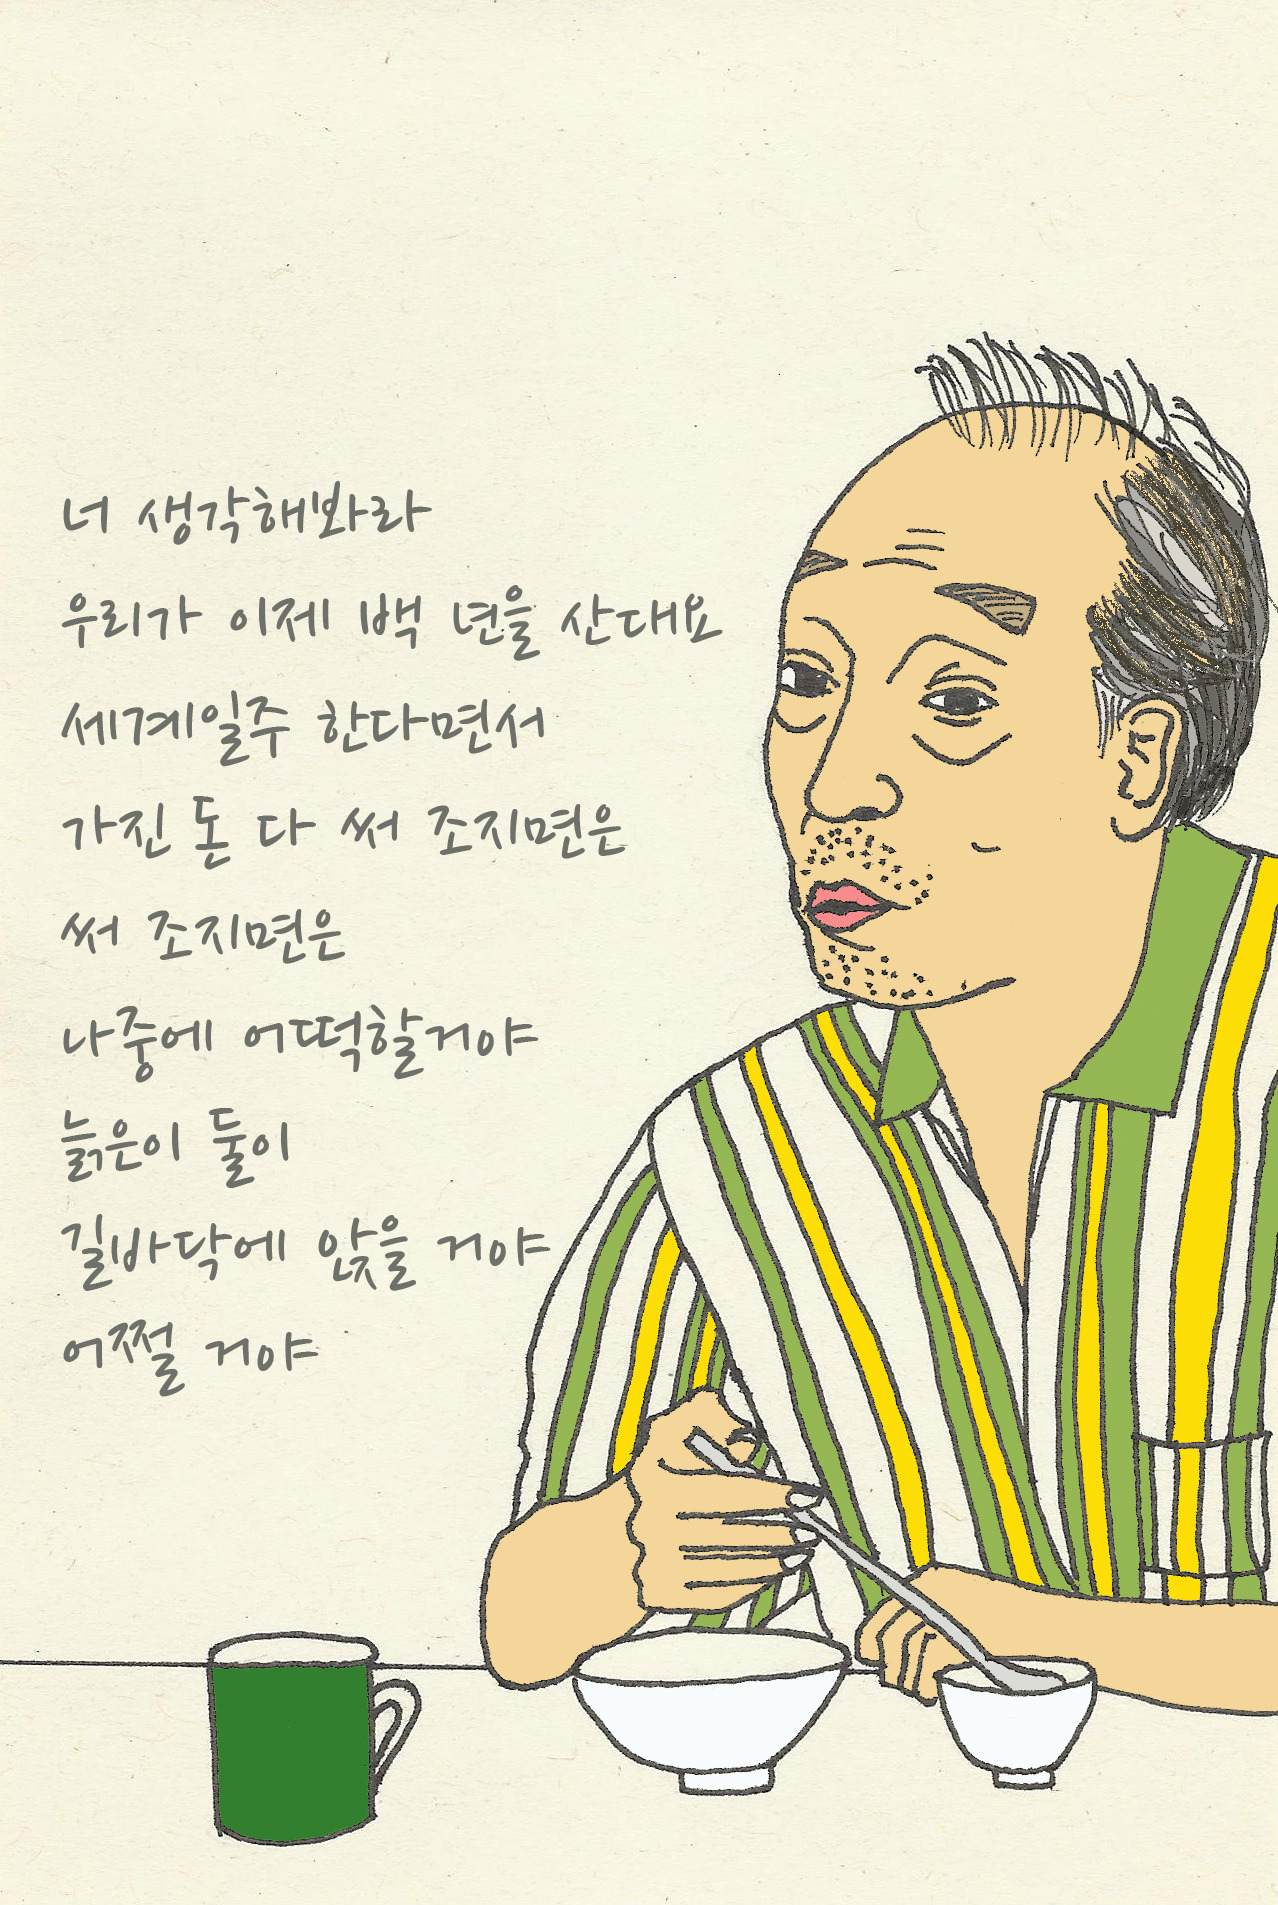 너 생각해봐라
우리가 이제 백 년을 산대요
세계일주 한다면서
가진 돈 다 써 조지면은
써 조지면은
나중에 어떡할거야
늙은이 둘이
길바닥에 앉을 거야
어쩔 거야